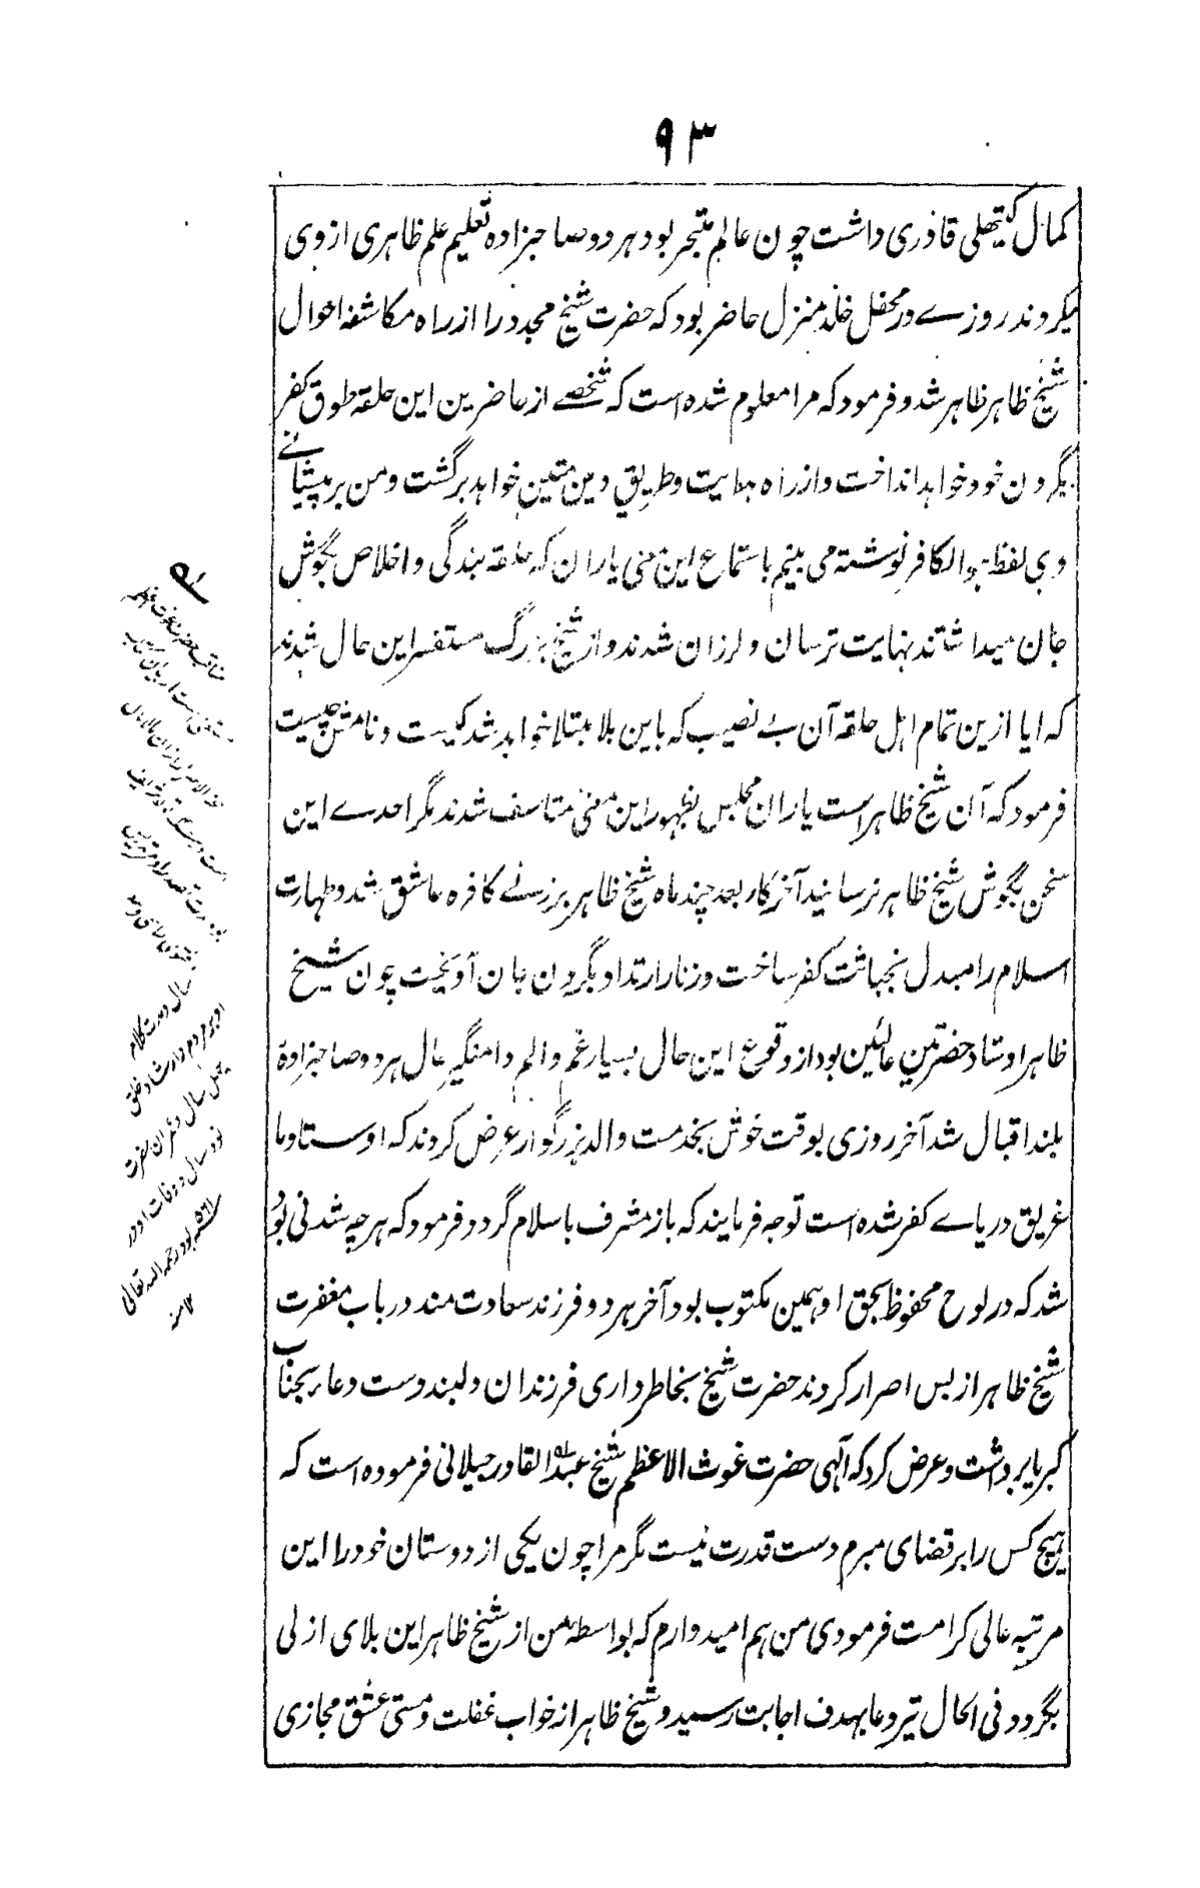 ۹۳
کمال کیتھلی قادری داشت چون عالم متبحر بود هر دو صاحبزاده تعلیم علم ظاهری از وی
میکردند روزے در محفل خلد منزل حاضر بود که حضرت شیخ مجدد را از راه مکاشفه احوال
شیخ ظاهر ظاهر شد و فرمود که مرا معلوم شده است که شخصے از حاضرین این حلقه طوق کفر
بگردن خود خواهد انداخت و از راه هدایت و طریق دین متین خواهد برگشت و من بر پیشانے
وی لفظ هو الکافر نوشته می بینم باستماع این معنی یاران که حلقه بندگی و اخلاص بگوش
جان میداشتند نهایت ترسان و لرزان شدند و از شیخ بزرگ مستفسر این حال شدند
که ایا ازین تمام اهل حلقه آن بے نصیب که باین بلا مبتلا خواهد شد کیست و نامش چیست
فرمود که آن شیخ ظاهر است یاران مجلس بظهور این معنی متاسف شدند مگر احدے این
سخن بگوش شیخ ظاهر نرسانید آخر کار بعد چند ماه شیخ ظاهر بر زنے کافره عاشق شد و طهارت
اسلام را مبدل بنجاثت کفر ساخت و زنار ارتداد بگردن جان آویخت چون شیخ
ظاهر اوستاد حضرتین عالیین بود از وقوع این حال بسیار غم و الم دامنگیر حال هر دو صاحبزادة
بلند اقبال شد آخر روزی بوقت خوش بخدمت والد بزرگوار عرض کردند که اوستاد ما
غریق دریاے کفر شده است توجه فرمایند که باز مشرف باسلام گردد فرمود که هرچه شدنی بود
شد که در لوح محفوظ بحق او همین مکتوب بود آخر هر دو فرزند سعادت مند در باب مغفرت
شیخ ظاهر از بس اصرار کردند حضرت شیخ بخاطرداری فرزندان دلبند دست دعا بجناب
کبریا برداشت و عرض کرد که آلهی حضرت غوث الاعظم شیخ عبد القادر جیلانی فرموده است که
هیچ کس را بر قضای مبرم دست قدرت نیست مگر مرا چون یکی از دوستان خود را این
مرتبه عالی کرامت فرمودی من هم امیدوارم که بواسطه من از شیخ ظاهر این بلای ازلی
بگردد فی الحال تیر دعا بهدف اجابت رسید و شیخ ظاهر از خواب غفلت و مستی عشق مجازی
سال و مدت کلام
چهل سال و عمران حضرت
نود سال و وفات او در
سنه ۵۶۱ بود رحمه الله تعالی